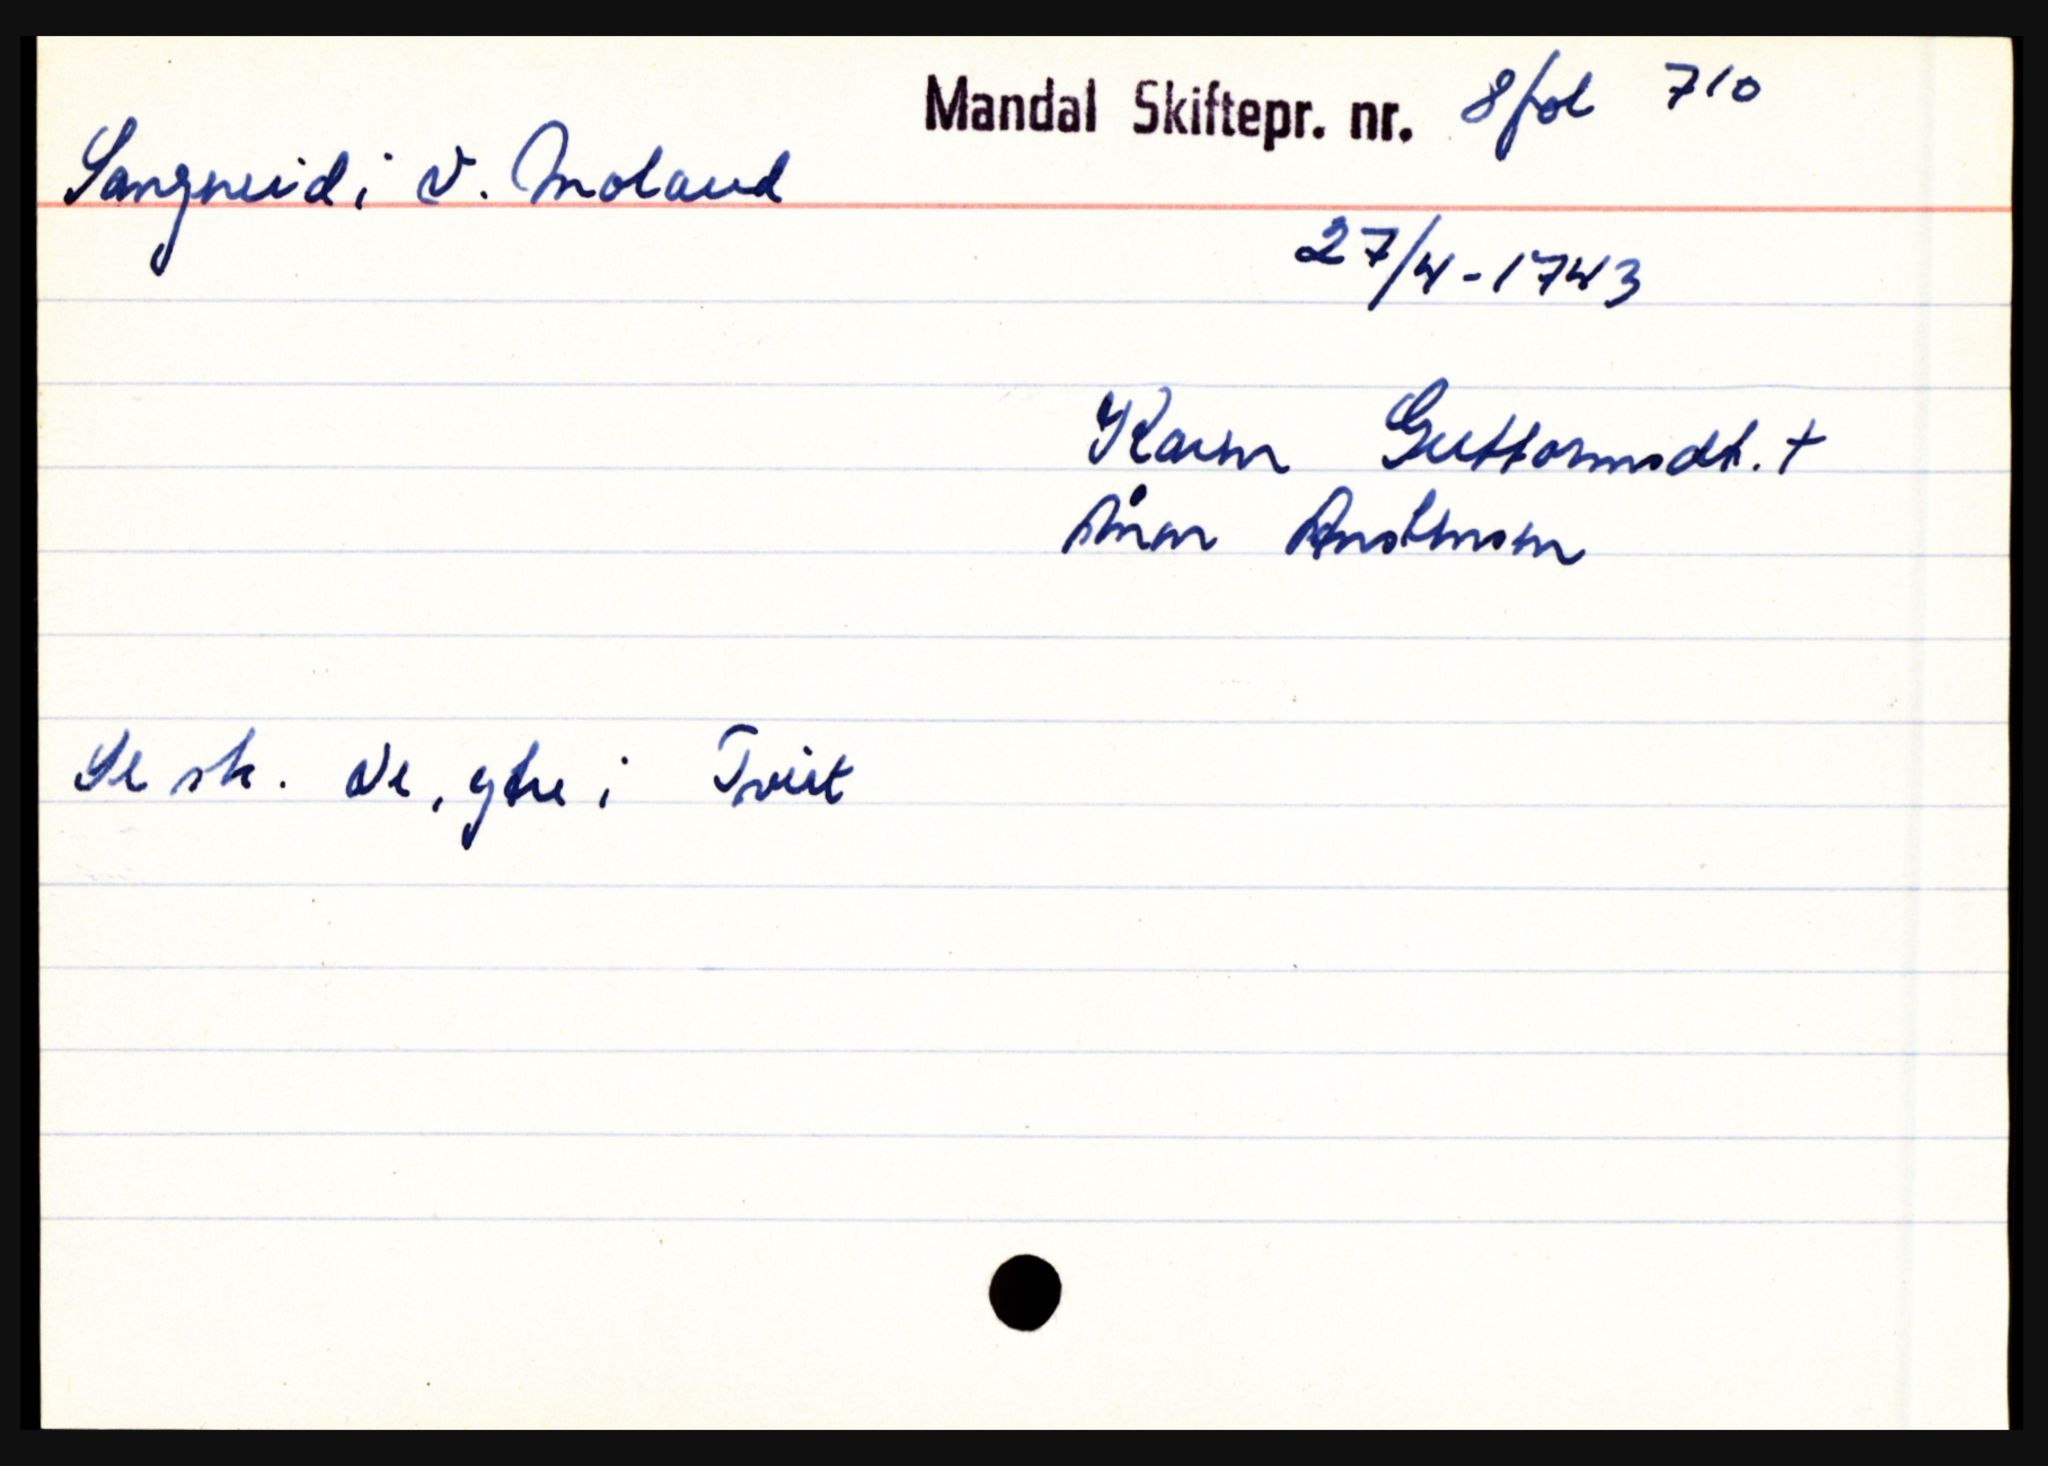 Mandal Skiftepr. nr. 8 fol 710
Sangneid i V. Moland
27/4-1743
Karen Guttormsdt. +
Ånen Anstensen
Se sk. Ve, ytre i Tveit